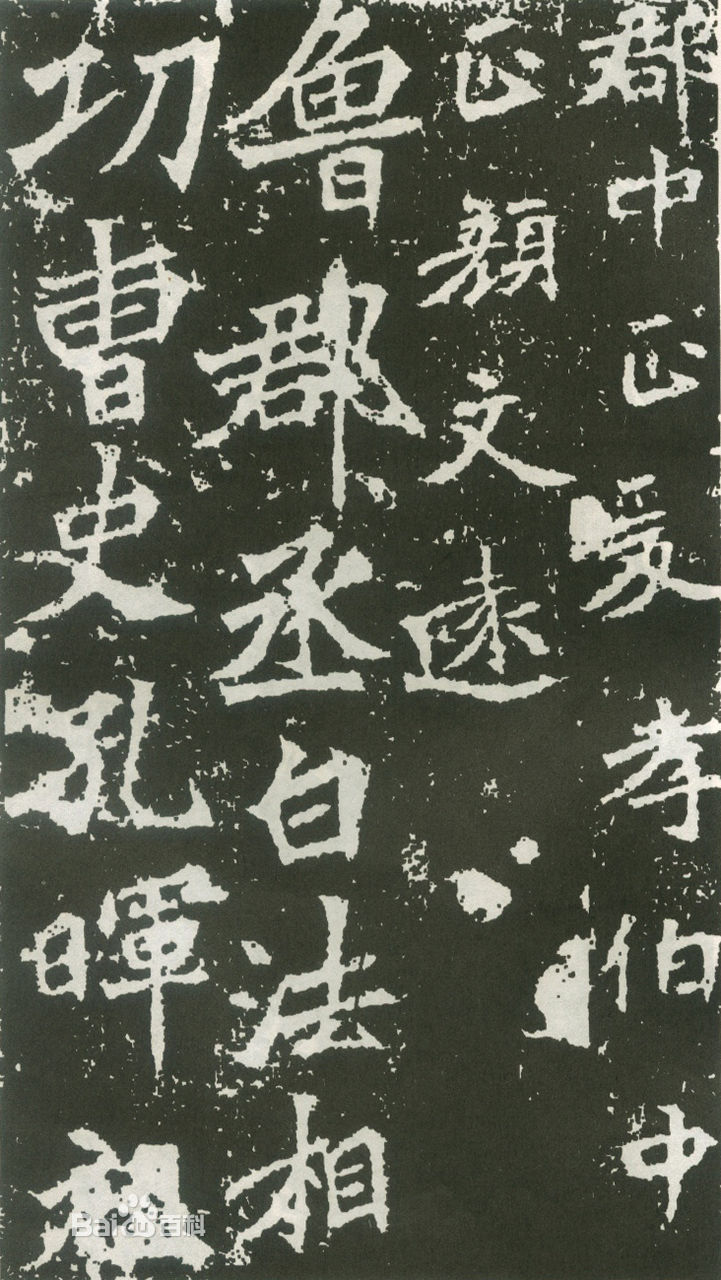 郡中正爰孝伯中
正顏文遠
魯郡丞白法相
功曹史孔暉祖
Baidu百科